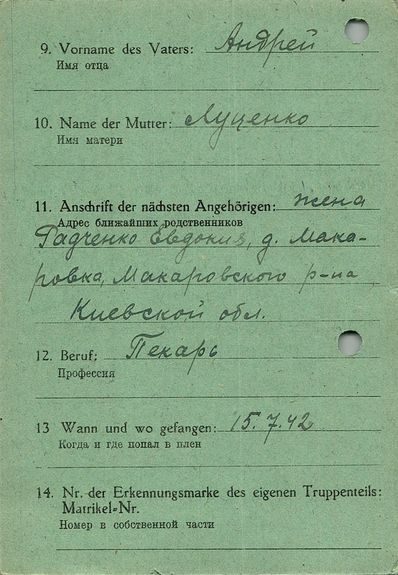 9. Vorname des Vaters: Андрей
Имя отца
10. Name der Mutter: Луценко
Имя матери
11. Anschrift der nächsten Angehörigen: жена
Адрес ближайших родственников
Радченко Евдокия, д. Мака-
ровка, Макаровского р-на
Киевской обл.
12. Beruf: Пекарь
Профессия
13 Wann und wo gefangen: 15.7.42
Когда и где попал в плен
14. Nr. der Erkennungsmarke des eigenen Truppenteils:
Matrikel-Nr.
Номер в собственной части